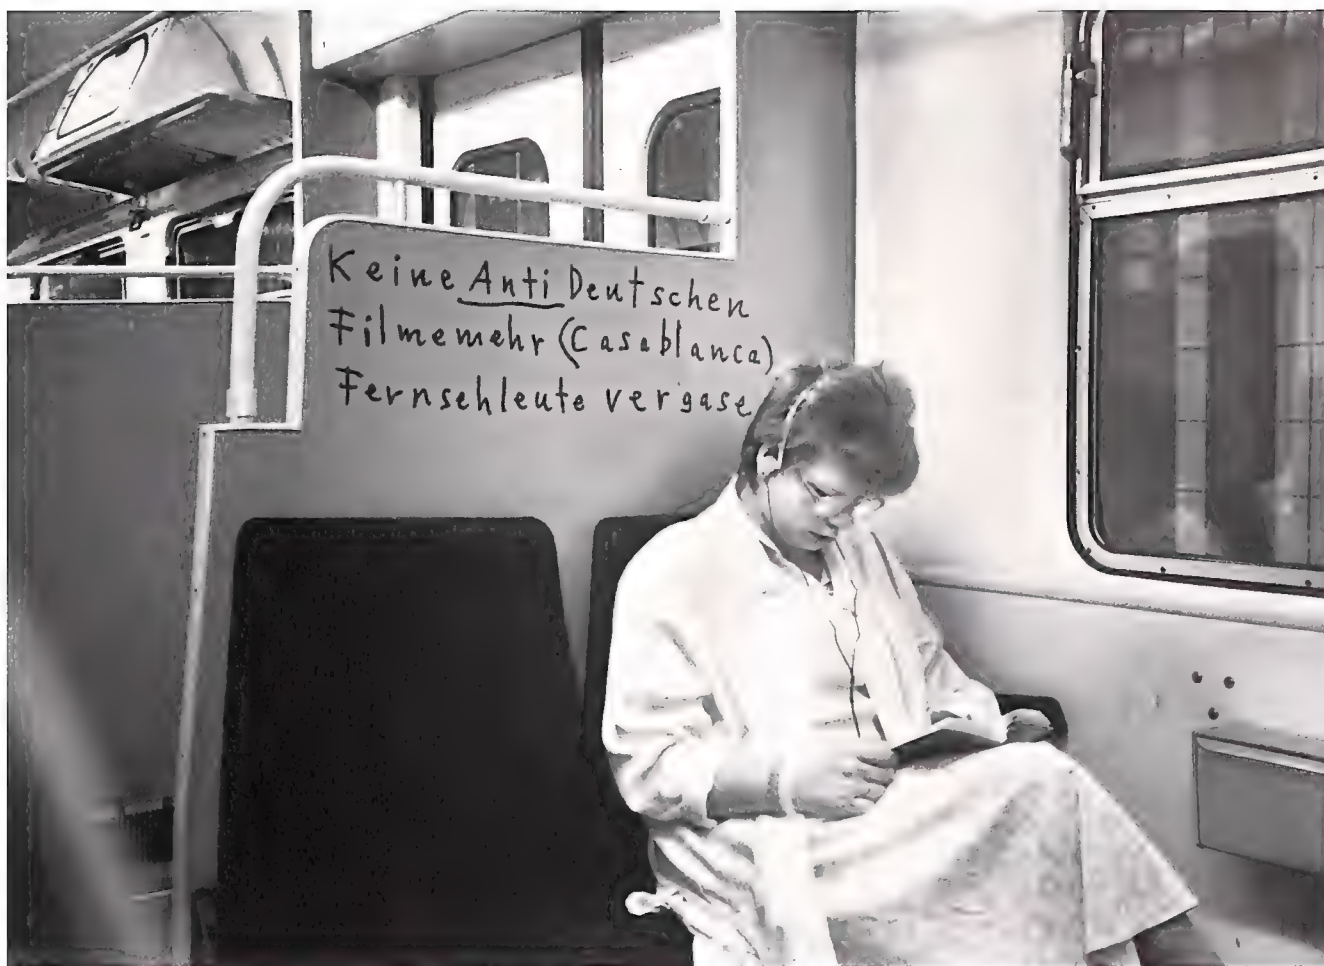 Keine Anti Deutschen
Filmemehr (Casablanca)
Fernsehleute vergase